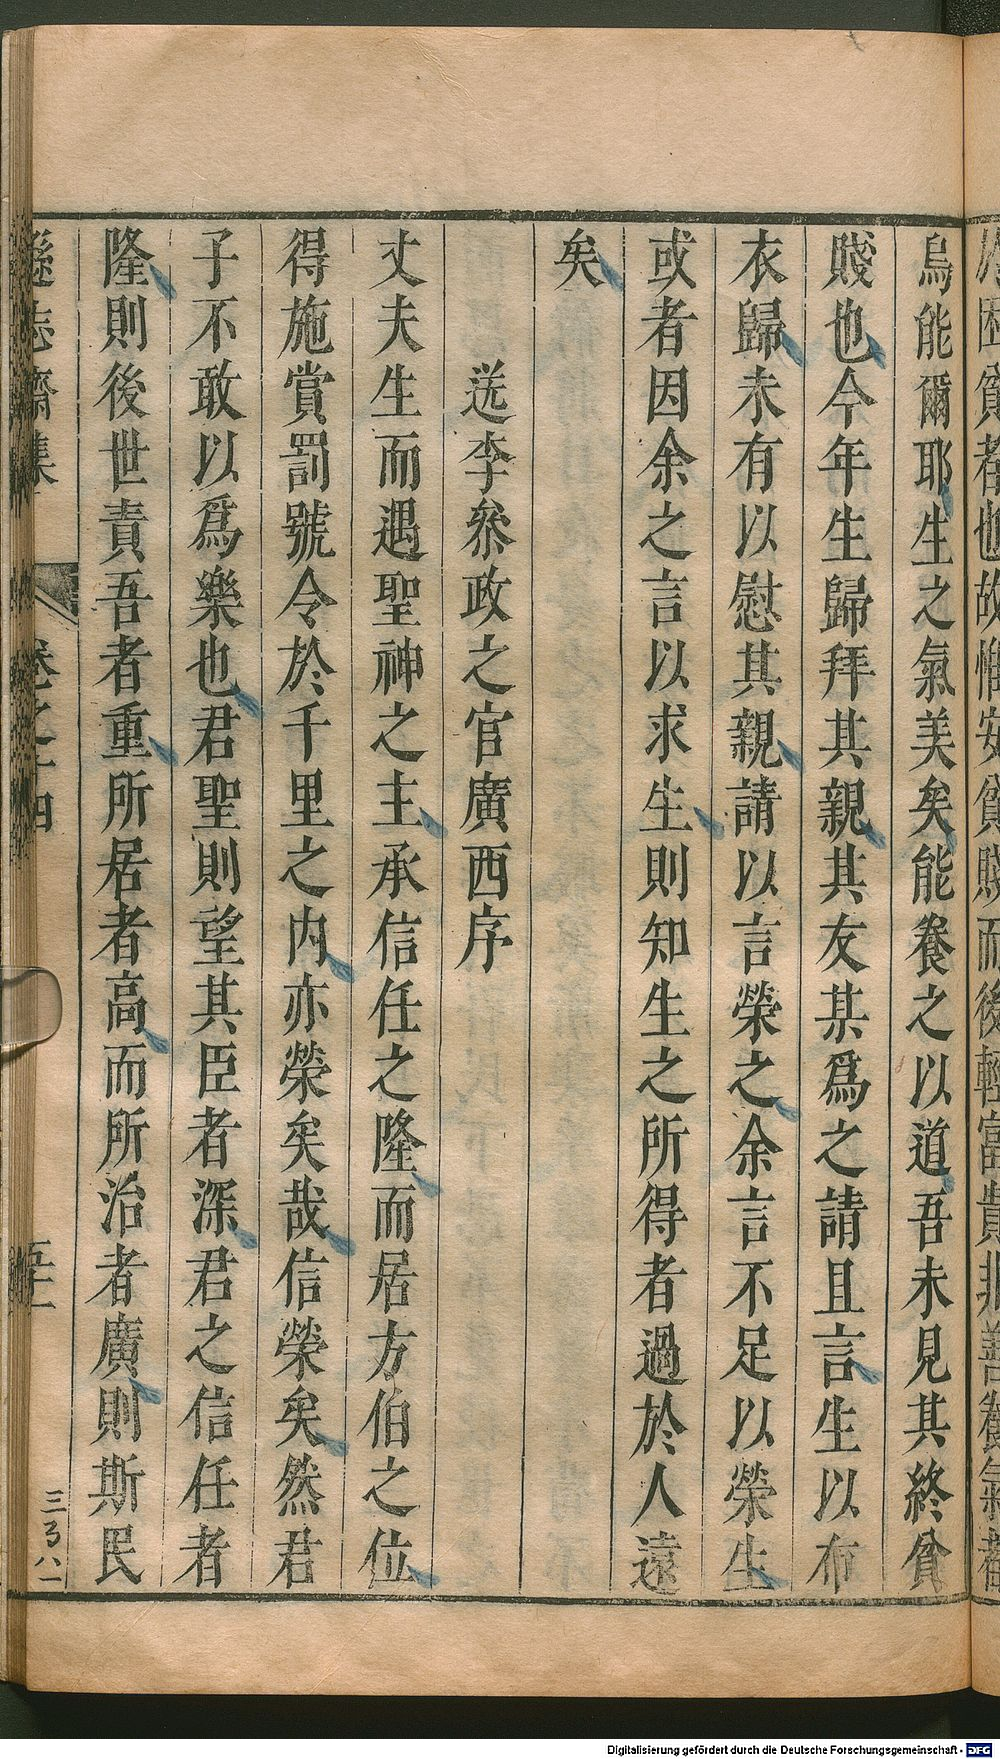 烏能爾耶生之氣美矣能養之以道吾未見其終貧
賤也今年生歸拜其親其友某爲之請且言生以布
衣歸未有以慰其親請以言榮之余言不足以榮生
或者因余之言以求生則知生之所得者過於人遠
矣
送李叅政之官廣西序
丈夫生而遇聖神之主承信任之隆而居方伯之位
得施賞罰號令於千里之内亦榮矣哉信榮矣然君
子不敢以爲樂也君聖則望其臣者深君之信任者
隆則後世責吾者重所居者高而所治者廣則斯民
遜志齋集 卷之十四 五十一
三〢八一
Digitalisierung gefördert durch die Deutsche Forschungsgemeinschaft - DFG